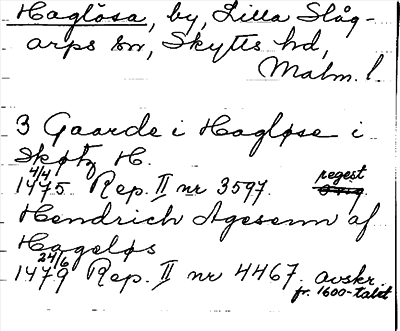 Haglösa, by, Lilla Slåg-
arps sn, Skytts hd,
Malm. l.
3 Gaarde i Hagløse i
Skøtz H.
4/4 1475 Rep. II nr 3597. regest
Hendrich Agesenn af
Hageløs
24/6 1479 Rep. II nr 4467. avskr.
fr. 1600-talet